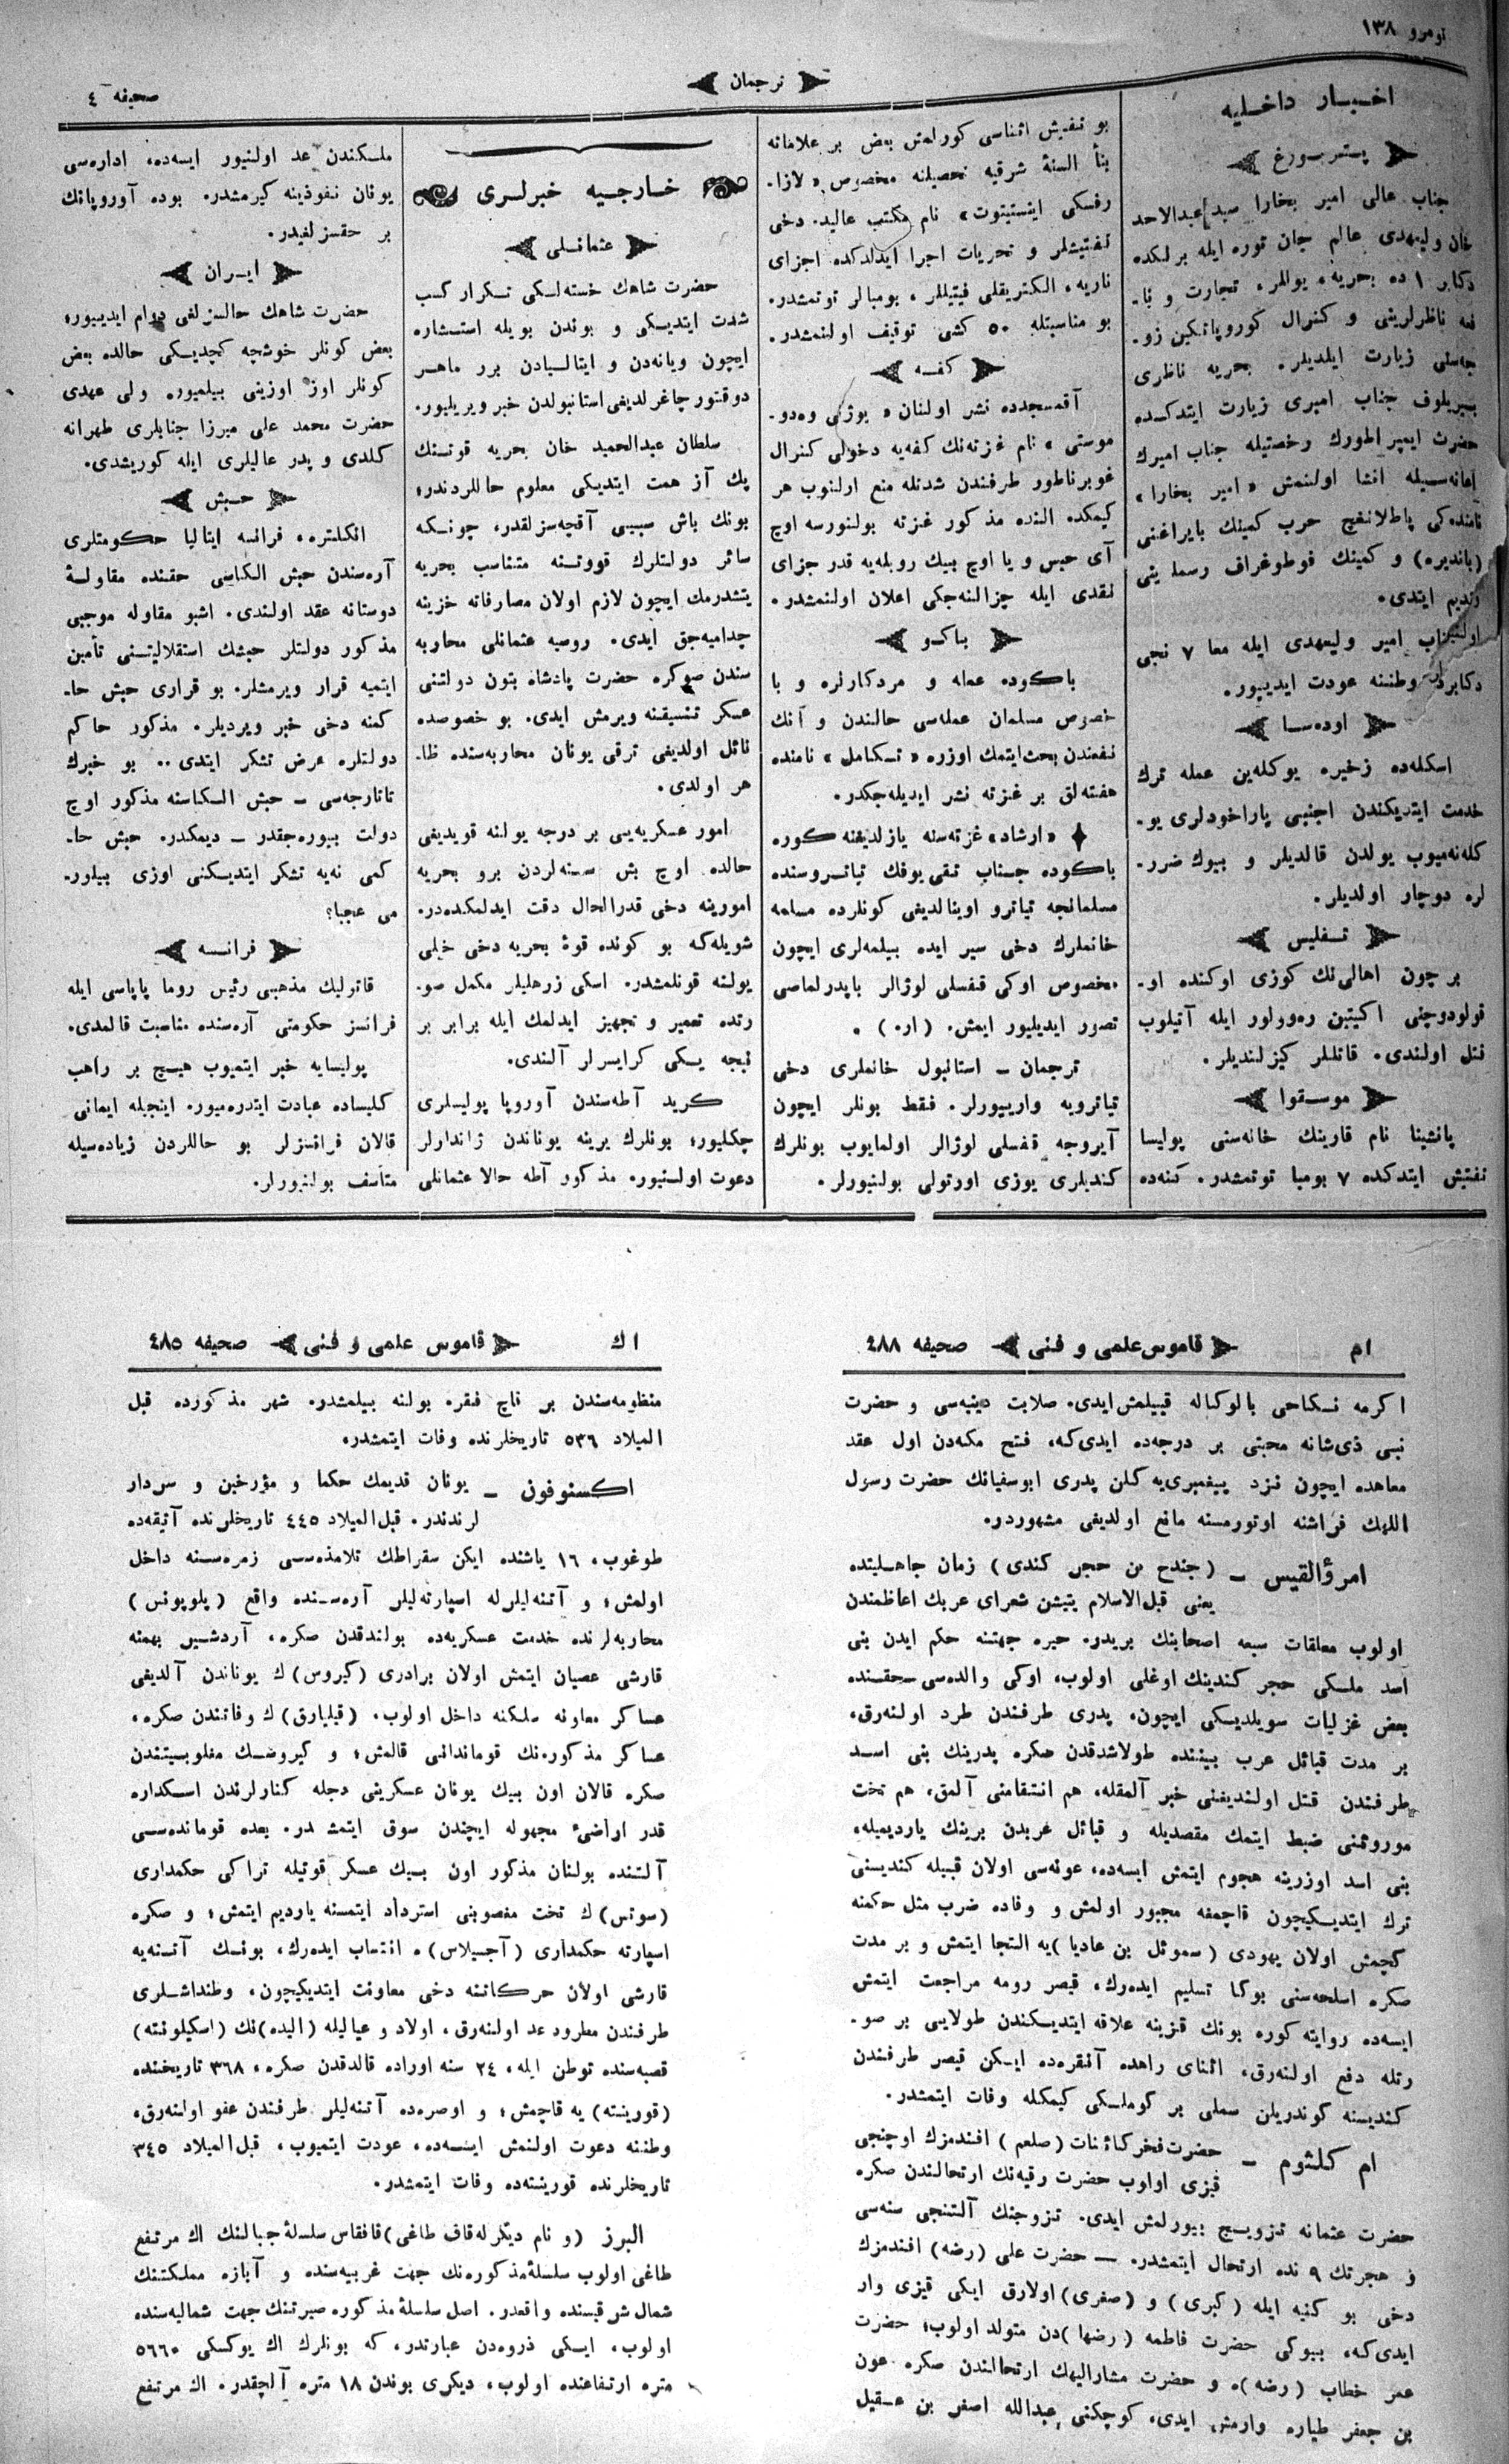 نومرو ١٣٨
ترجمان
صحیفه ٤
اخبار داخلیه
پتربورغ
جناب عالی امیر بخارا سید عبدالاحد
خان ولیعهدی عالم جان توره ایله برلکده
دکابر ١ ده بحریه، یوللر، تجارت و نا-
فعه ناظرلرینی و کنرال کوروپاتکین زو-
جه‌سنی زیارت ایلدیلر. بحریه ناظری
بیریلوف جناب امیری زیارت ایتدکده
حضرت ایمپراطورك رخصتیله جناب امیرك
اعانه‌سیله انشا اولنمش «امیر بخارا»
نامنده‌کی پاطلانغیچ حرب کمینك بایراغنی
(باندیره) و کمینك فوطوغراف رسملرینی
تقدیم ایتدی.
جناب امیر ولیعهدی ایله معا ٧ نجی
دکابرده وطننه عودت ایدییور.
اوده‌سا
اسکله‌ده زخیره یوکله‌ین عمله ترك
خدمت ایتدیکندن اجنبی پاراخودلری یو-
کله‌نه‌میوب یولدن قالدیلر و بیوك ضرر-
لره دوچار اولدیلر.
تفلیس
بر چون اهالی‌نك کوزی اوکنده او-
قولودوچنی اکیتین ره‌وولور ایله آتیلوب
قتل اولندی. قاتللر کیزلندیلر.
موسقوا
پانشینا نام قارینك خانه‌سنی پولیسا
تفتیش ایتدکده ٧ بومبا توتمشدر. کنه‌ده
بو تفیش اثناسی کورلمش بعض بر علاماته
بنأ السنۀ شرقیه تحصیلنه مخصوص «لازا-
رفسکی اینستیتوت» نام مکتب عالیده دخی
تفتیشلر و تحریات اجرا ایدلدکده اجزای
ناریه، الکتریقلی فیتیللر، بومبالر توتمشدر.
بو مناسبتله ٥٠ کشی توقیف اولنمشدر.
کفه
آقمسجدده نشر اولنان «یوژنی وه‌دو-
موستی» نام غزته‌نك کفه‌یه دخولی کنرال
غوبرناطور طرفندن شدتله منع ارلنوب هر
کیمکده النده مذکور غزته بولنورسه اوچ
آی حبس و یا اوچ بیك روبله‌یه قدر جزای
نقدی ایله جزالنه‌جکی اعلان اولنمشدر.
باکو
باکوده عمله و مردکارلره و با
خصوص مسلمان عمله‌سی حالندن و آنك
نفعندن بحث‌ایتمك اوزره «تکامل» نامنده
هفته‌لق بر غزته نشر ایدیله‌جکدر.
«ارشاد» غزته‌سنه یازلدیغنه کوره
باکوده جناب تقی‌یوفك تیاتروسنده
مسلمانجه تیاترو اوینالدیغی کونلرده مسلمه
خانملرك دخی سیر ایده بیلمه‌لری ایچون
مخصوص اوکی قفسلی لوژالر یاپدرلماصی
تصور ایدیلیور ایمش. (ار.) .
ترجمان – استانبول خانملری دخی
تیاترویه وارییورلر. فقط بونلر ایچون
آیروجه قفسلی لوژالر اولمایوب بونلرك
کندیلری یوزی اورتولی بولنیورلر.
خارجیه خبرلری
عثمانلی
حضرت شاهك خسته‌لکی تکرار کسب
شدت ایتدیکی و بوندن بویله استشاره
ایچون ویانه‌دن و ایتالیادن برر ماهر
دوقتور چاغرلدیغی استانبولدن خبر ویریلیور.
سلطان عبدالحمید خان بحریه قوتنك
پك آز همت ایتدیکی معلوم حاللردندر؛
بونك باش سببی آقچه‌سزلقدر، چونکه
سائر دولتلرك قووتنه متناسب بحریه
یتشدرمك ایچون لازم اولان مصارفاته خزینه
چدامیه‌جق ایدی. روسیه عثمانلی محاربه
سندن صوکره حضرت پادشاه بتون دولتنی
عسکر تنسیقنه ویرمش ایدی. بو خصوصده
نائل اولدیغی ترقی یونان محاربه‌سنده ظا-
هر اولدی.
امور عسکریه‌یی بر درجه یولنه قویدیغی
حالده اوچ بش سنه‌لردن برو بحریه
امورینه دخی قدرالحال دقت ایدلمکده‌در.
شویله‌که بو کونده قوۀ بحریه دخی خیلی
یولنه قونلمشدر. اسکی زرهلیلر مکمل صو-
رتده تعمیر و تجهیز ایدلمك ایله برابر بر
نیجه یکی کرایسرلر آلندی.
کرید آطه‌سندن آوروپا پولیسلری
چکلیور؛ بونلرك یرینه یوناندن ژاندارلر
دعوت اولنیور. مذکور آطه حالا عثمانلی
ملکندن عد اولنیور ایسه‌ده، اداره‌سی
یونان نفوذینه کیرمشدر. بوده آوروپانك
بر حقسزلغیدر.
ایران
حضرت شاهك حالسزلغی دوام ایدییور؛
بعض کونلر خوشجه کچدیکی حالده بعض
کونلر اوز اوزینی بیلمیور. ولی عهدی
حضرت محمد علی میرزا جنابلری طهرانه
کلدی و پدر عالیلری ایله کوریشدی.
حبش
انکلتره، فرانسه ایتالیا حکومتلری
آره‌سندن حبش الکاسی حقنده مقاولۀ
دوستانه عقد اولندی. اشبو مقاوله موجبی
مذکور دولتلر حبشك استقلالیتنی تأمین
ایتمیه قرار ویرمشلر. بو قراری حبش حا-
کمنه دخی خبر ویردیلر. مذکور حاکم
دولتلره عرض تشکر ایتدی.. بو خبرك
تاتارجه‌سی – حبش الکاسنه مذکور اوچ
دولت بیوره‌جقدر – دیمکدر. حبش حا-
کمی نه‌یه تشکر ایتدیکنی اوزی بیلور-
می عجبا؟
فرانسه
قاتولیك مذهبی رئیس روما پاپاسی ایله
فرانسز حکومتی آره‌سنده مناسبت قالمدی.
پولیسایه خبر ایتمیوب هیچ بر راهب
کلیساده عبادت ایتدره‌میور. اینجیله ایمانی
قالان فرانسزلر بو حاللردن زیاده‌سیله
متأسف بولنیورلر.
ام
قاموس علمی و فنی
صحیفه ٤٨٨
اکرمه نکاحی بالوکاله قییلمش‌ایدی. صلابت دینیه‌سی و حضرت
نبی ذی‌شانه محبتی بر درجه‌ده ایدی‌که، فتح مکه‌دن اول عقد
معاهده ایچون نزد پیغمبری‌یه کلن پدری ابوسفیانك حضرت رسول
اللهك فراشنه اوتورمسنه مانع اولدیغی مشهوردر.
امرؤالقیس – (جندح بن حجر کندی) زمان جاهلیتده
یعنی قبل‌الاسلام یتیشن شعرای عربك اعاظمندن
اولوب معلقات سبعه اصحابنك بریدر. حیره جهتنه حکم ایدن بنی
اسد ملکی حجر کندینك اوغلی اولوب، اوکی والده‌سی حقنده
بعض غزلیات سویلدیکی ایچون، پدری طرفندن طرد اولنه‌رق،
بر مدت قبائل عرب بیننده طولاشدقدن صکره پدرینك بنی اسد
طرفندن قتل اولندیغنی خبر آلمقله، هم انتقامنی آلمق، هم تخت
موروثنی ضبط ایتمك مقصدیله و قبائل عربدن برینك یاردیمیله،
بنی اسد اوزرینه هجوم ایتمش ایسه‌ده، عونه‌سی اولان قبیله کندیسنی
ترك ایتدیکیچون قاچمغه مجبور اولمش و وفاده ضرب مثل حکمنه
کچمش اولان یهودی (سموئل بن عادیا)یه التجا ایتمش و بر مدت
صکره اسلحه‌سنی بوکا تسلیم ایده‌رك، قیصر رومه مراجعت ایتمش
ایسه‌ده روایته کوره بونك قزینه علاقه ایتدیکندن طولایی بر صو-
رتله دفع اولنه‌رق، اثنای راهده آنقره‌ده ایکن قیصر طرفندن
کندیسنه کوندریلن سملی بر کوملکی کیمکله وفات ایتمشدر.
ام کلثوم – حضرت فخر کائنات (صلعم) افندمزك اوچنجی
قیزی اولوب حضرت رقیه‌نك ارتحالندن صکره
حضرت عثمانه تزویج بیورلمش ایدی. تزوجنك آلتنجی سنه‌سی
و هجرتك ٩ نده ارتحال ایتمشدر. — حضرت علی (رضه) افندمزك
دخی بو کنیه ایله (کبری) و (صغری) اولارق ایکی قیزی وار
ایدی‌که، بیوکی حضرت فاطمه (رضها)دن متولد اولوب؛ حضرت
عمر خطاب (رضه)ه و حضرت مشارالیهك ارتحالندن صکره عون
بن جعفر طیاره وارمش ایدی، کوچکنی عبدالله اصغر بن عقیل
اك
قاموس علمی و فنی
صحیفه ٤٨٥
منظومه‌سندن بر قاچ فقره بولنه بیلمشدر. شهر مذکورده قبل
المیلاد ٥٣٦ تاریخلرنده وفات ایتمشدر.
اکسنوفون – یونان قدیمك حکما و مؤرخین و سردار
لرندندر. قبل‌المیلاد ٤٤٥ تاریخلرنده آتیقه‌ده
طوغوب، ١٦ یاشنده ایکن سقراطك تلامذه‌سی زمره‌سنه داخل
اولمش؛ و آتنه‌لیلرله اسپارته‌لیلر آره‌سنده واقع (پلوپونس)
محاربه‌لرنده خدمت عسکریه‌ده بولندقدن صکره، آردشیر بهمنه
قارشی عصیان ایتمش اولان برادری (کیروس)ك یوناندن آلدیغی
عساکر معاونه سلکنه داخل اولوب، (قیلیارق)ك وفاتندن صکره،
عساکر مذکوره‌نك قوماندانی قالمش؛ و کیروسك مغلوبیتندن
صکره قالان اون بیك یونان عسکرینی دجله کنارلرندن اسکداره
قدر اراضیٔ مجهوله ایچندن سوق ایتمشدر. بعده قومانده‌سی
آلتنده بولنان مذکور اون بیك عسکر قوتیله تراکی حکمداری
(سوتس)ك تخت مغصوبنی استرداد ایتمسنه یاردیم ایتمش؛ و صکره
اسپارته حکمداری (آجسیلاس)ه انتساب ایده‌رك، بونك آتنه‌یه
قارشی اولان حرکاتنه دخی معاونت ایتدیکیچون، وطنداشلری
طرفندن مطرود عد اولنه‌رق، اولاد و عیالیله (الیده)نك (اسکیلونته)
قصبه‌سنده توطن ایله، ٢٤ سنه اوراده قالدقدن صکره، ٣٦٨ تاریخنده
(قورینته) یه قاچمش؛ و اوصره‌ده آتنه‌لیلر طرفندن عفو اولنه‌رق،
وطننه دعوت اولنمش ایسه‌ده، عودت ایتمیوب، قبل‌المیلاد ٣٤٥
تاریخلرنده قورینته‌ده وفات ایتمشدر.
البرز (و نام دیکرله قاف طاغی) قافقاس سلسلۀ جبالنك اك مرتفع
طاغی اولوب سلسلۀ مذکوره‌نك جهت غربیه‌سنده و آبازه مملکتنك
شمال شرقیسنده واقعدر. اصل سلسلۀ مذکوره صیرتنك جهت شمالیه‌سنده
اولوب، ایکی ذروه‌دن عبارتدر، که بونلرك اك یوکسکی ٥٦٦٠
متره ارتفاعنده اولوب، دیکری بوندن ١٨ متره آلچقدر. اك مرتفع